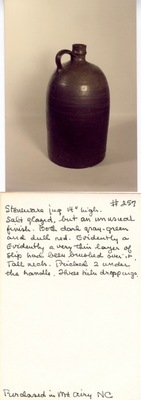 #257
Stoneware jug 14" high.
Salt glazed, but an unusual
finish. Both dark gray-green
and dull red. Evidently a
Evidently a very thin layer of
slip had been brushed over it
Tall neck. Pricked 2 under
the handle. Three kiln droppings.
Purchased in Mt Airy NC